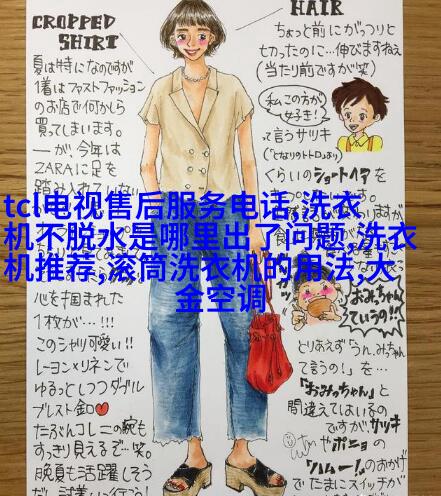 CROPPED
SHIRT
夏は特になのですが
1着はファストファッション
のお店で何かしら
買ってしまいます。
一が、今年は
ZARAに足を
踏み入れ
心を掴まれた
1枚が…!!!
このシャリ可愛い!!
レーヨン×リネンで
ゆるっとしつつダブル
ブレスト釦♥
たぶんコレ二の腕も
すっきり見えるぞ…笑。
晩夏も活躍しそう
HAIR
ちょっと前にがっつりと
切ったのに…伸びますねぇ
(当たり前ですが笑)
私この方が
好き!
って言うサツキ
(「となりのトトロ」より)
くらいのショートヘアを
tcl电视售后服务电话,洗衣
机不脱水是哪里出了问题,洗衣
机推荐,滚筒洗衣机的用法,大
金空调
おみちゃん
ていうの!!
とりあえず「うん、みちゃん
て言うの!」を
「おみっちゃん」と
間違えてはいるの
ですが、サツキ
やポニョの
「ハムー!」のおかげ
でたまにスイッチが